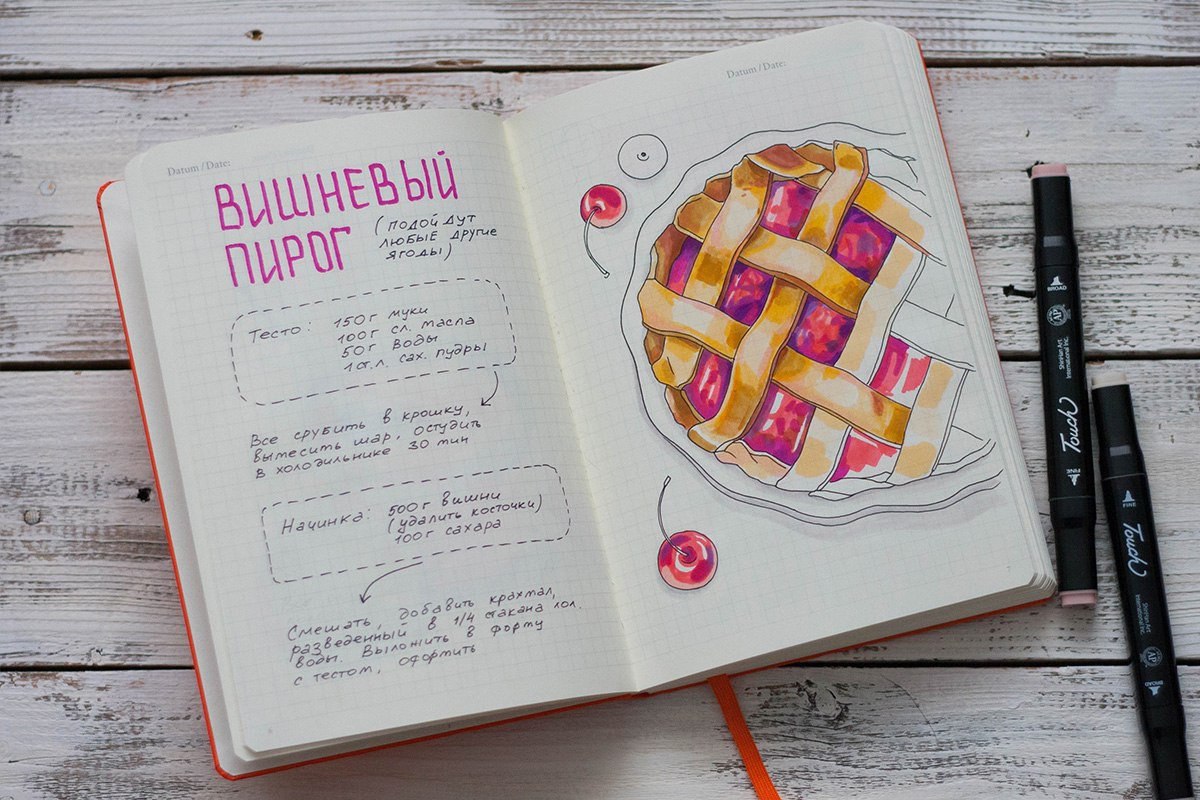 Datum / Date:
ВИШНЕВЫЙ
ПИРОГ
(ПОДОЙДУТ
ЛЮБЫЕ ДРУГИЕ
ЯГОДЫ)
Тесто: 150г муки
100г сл. масла
50г воды
1 ст.л. сах. пудры
Все срубить в крошку,
вымесить шар, остудить
в холодильнике 30 мин
Начинка: 500г вишни
(удалить косточки)
100г сахара
Смешать, добавить крахмал,
разведенный в 1/4 стакана хол.
воды. Выложить в форму
с тестом, оформить
Datum / Date:
BROAD
AP
ShinHan Art
International Inc.
Touch
FINE
FINE
Touch
ShinHan Art
International Inc.
AP
BROAD